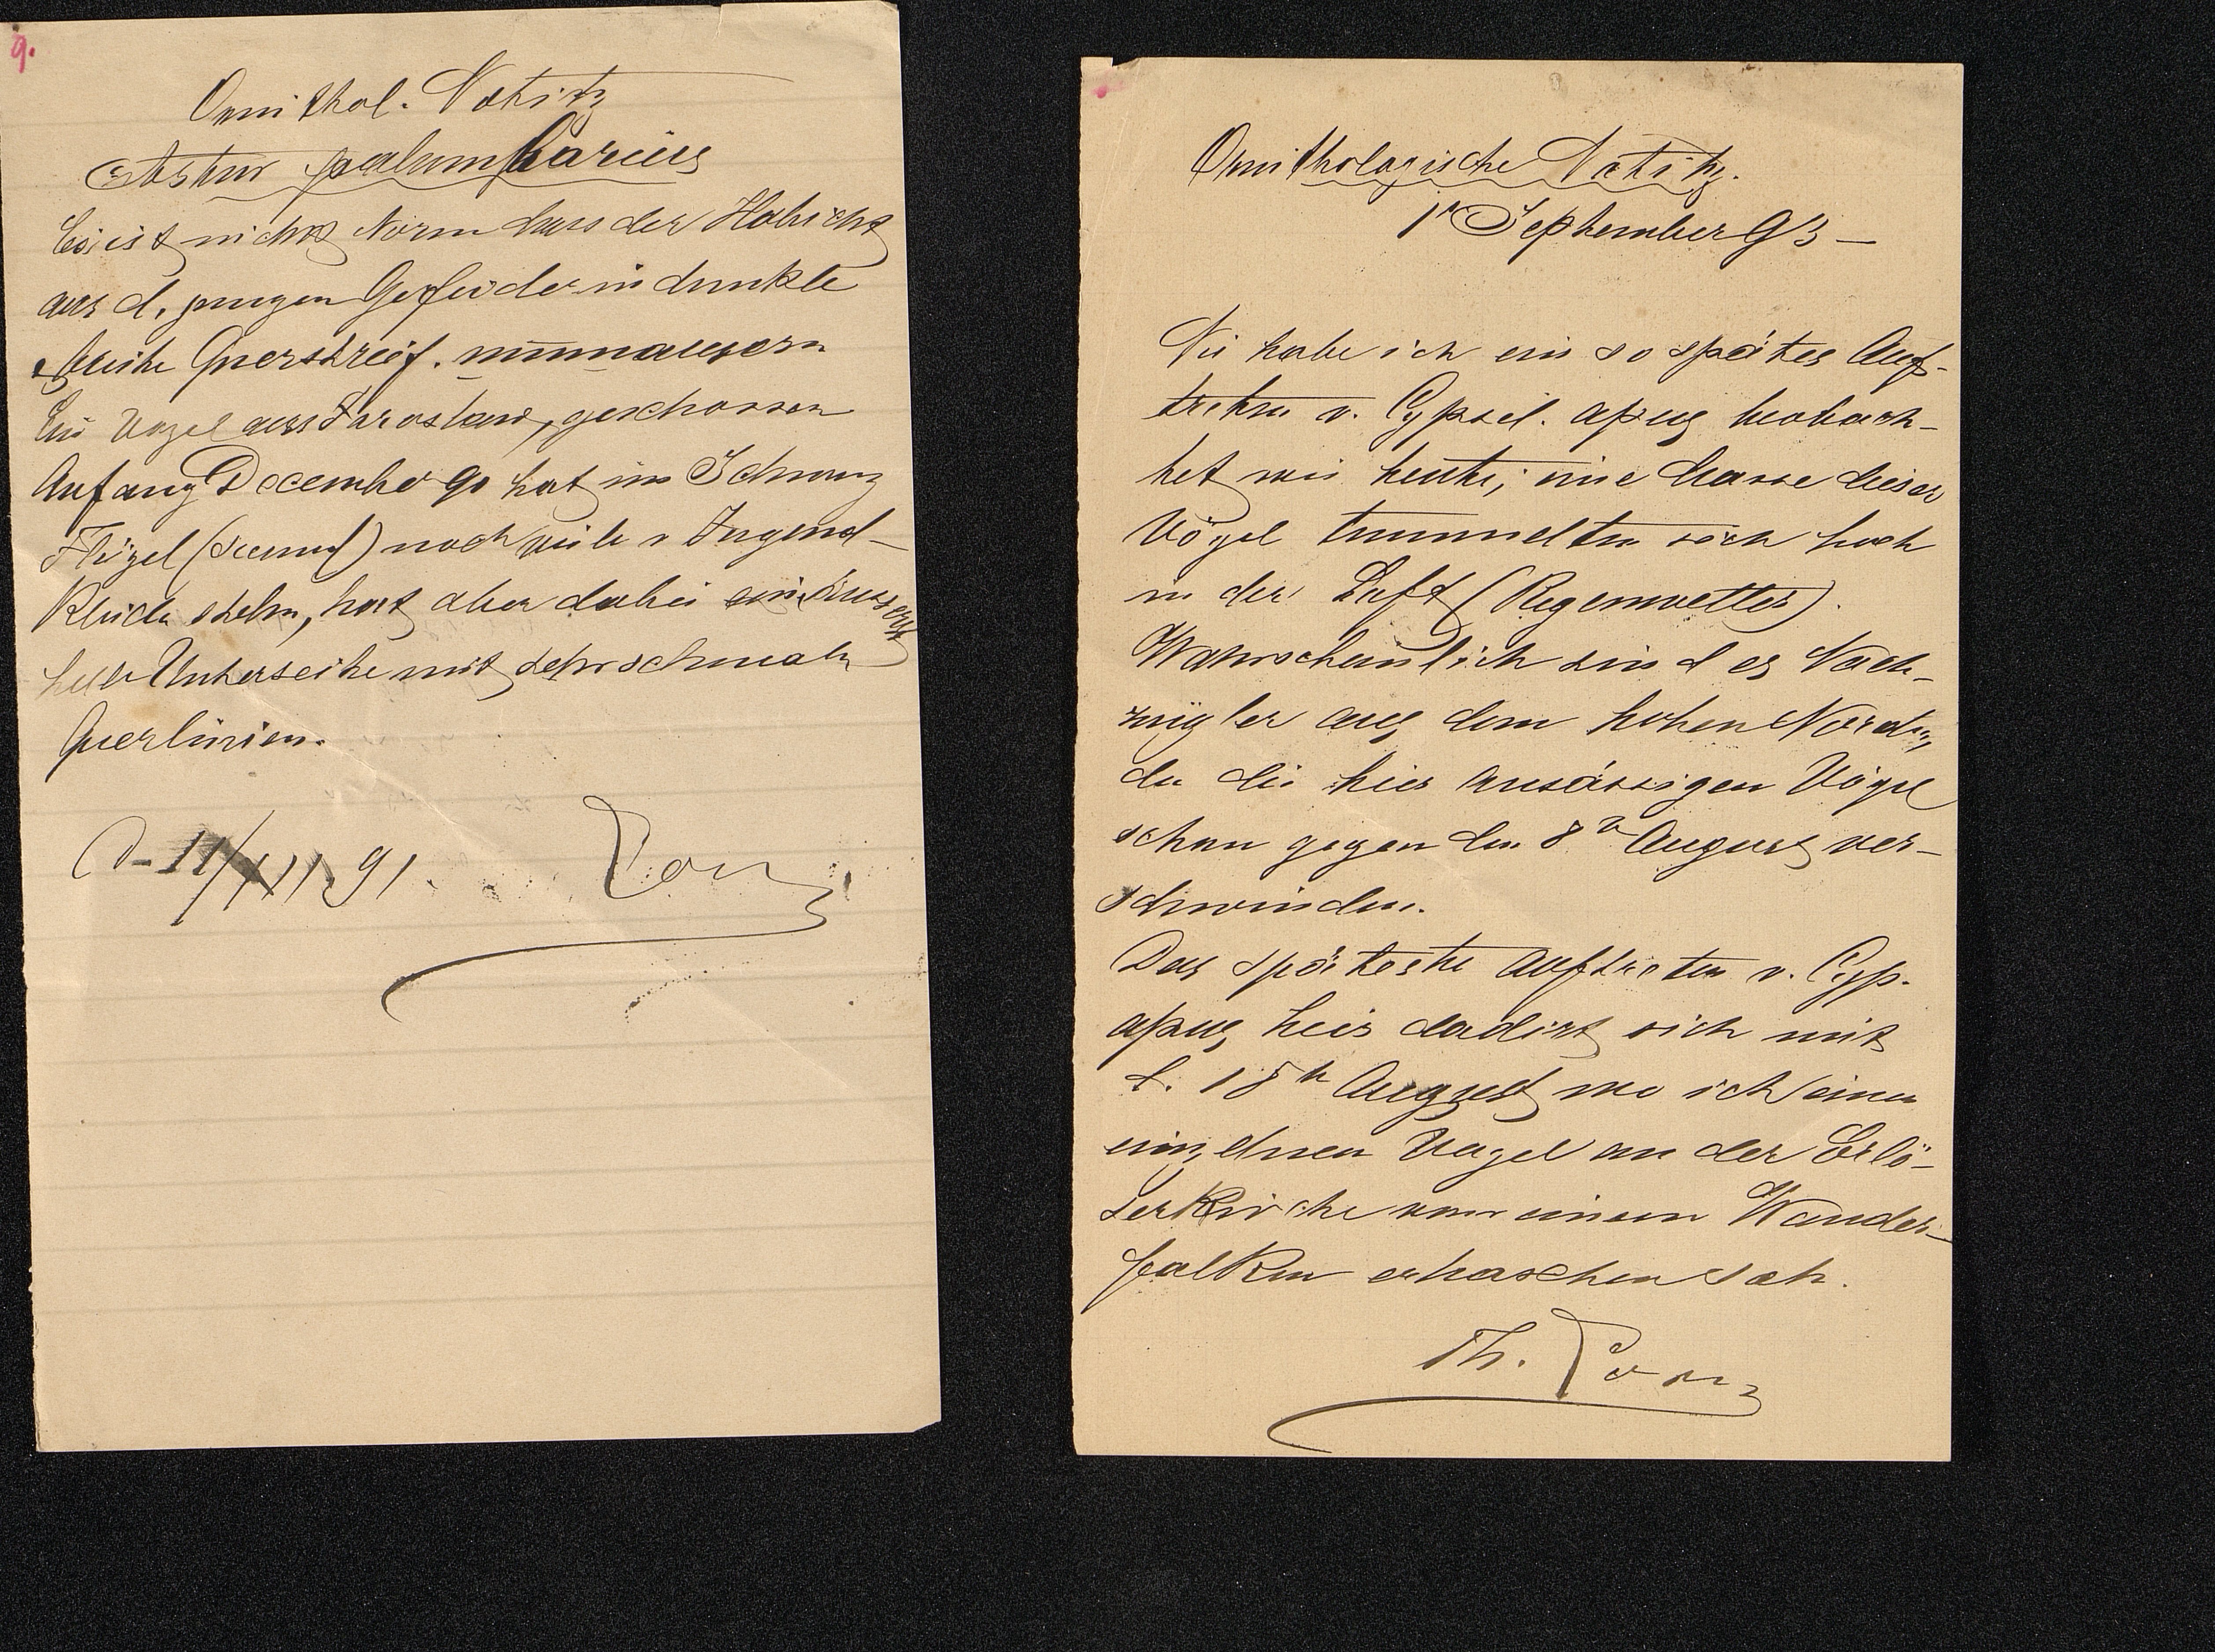 9.
Ornithol. Notitz
Astur palumbarius
Es ist nicht Norm dass der Habicht
aus d. jungen Gefieder in dunkle
breite Querstreif.
Ein Vogel aus Jaroslaw, geschossen
Anfang December 90 hat im Schwanz
Flügel (secund) noch viele v Jugend-
kleide stehn, hat aber dabei ein äusserst
helle Unterseite mit sehr schmaln
Querlinien.
d- 11/XII 91. Lorenz
Ornithologische Notitz.
1n September 93 —
Nie habe ich ein so spätes Auf-
treten v. Cypsel. apus beobach-
tet wie heute; eine Masse dieser
Vögel tummelten sich hoch
in der Luft (Regenwetter).
Wahrscheinlich sind es Nach-
zügler aus dem hohen Norden,
da die hier ansässigen Vögel
schon gegen den 8n August ver-
schwinden.
Das späteste Auftreten v. Cyp.
apus hier dadirt sich mit
d. 18n August wo ich einen
einzelnen Vogel an der Erlö-
serkirche von einem Wander-
falken erhaschen sah.
Th. Lorenz